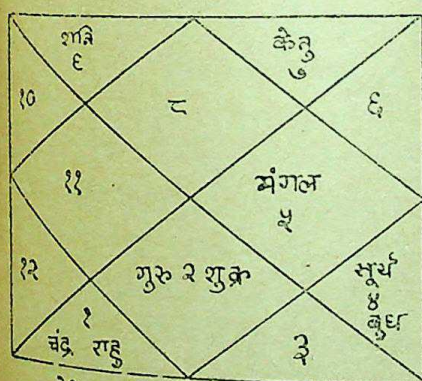 शनि
९
केतु
७
१०
८
६
११
मंगल
५
१२
गुरु २ शुक्र
सूर्य
४
बुध
१
चंद्र राहु
३